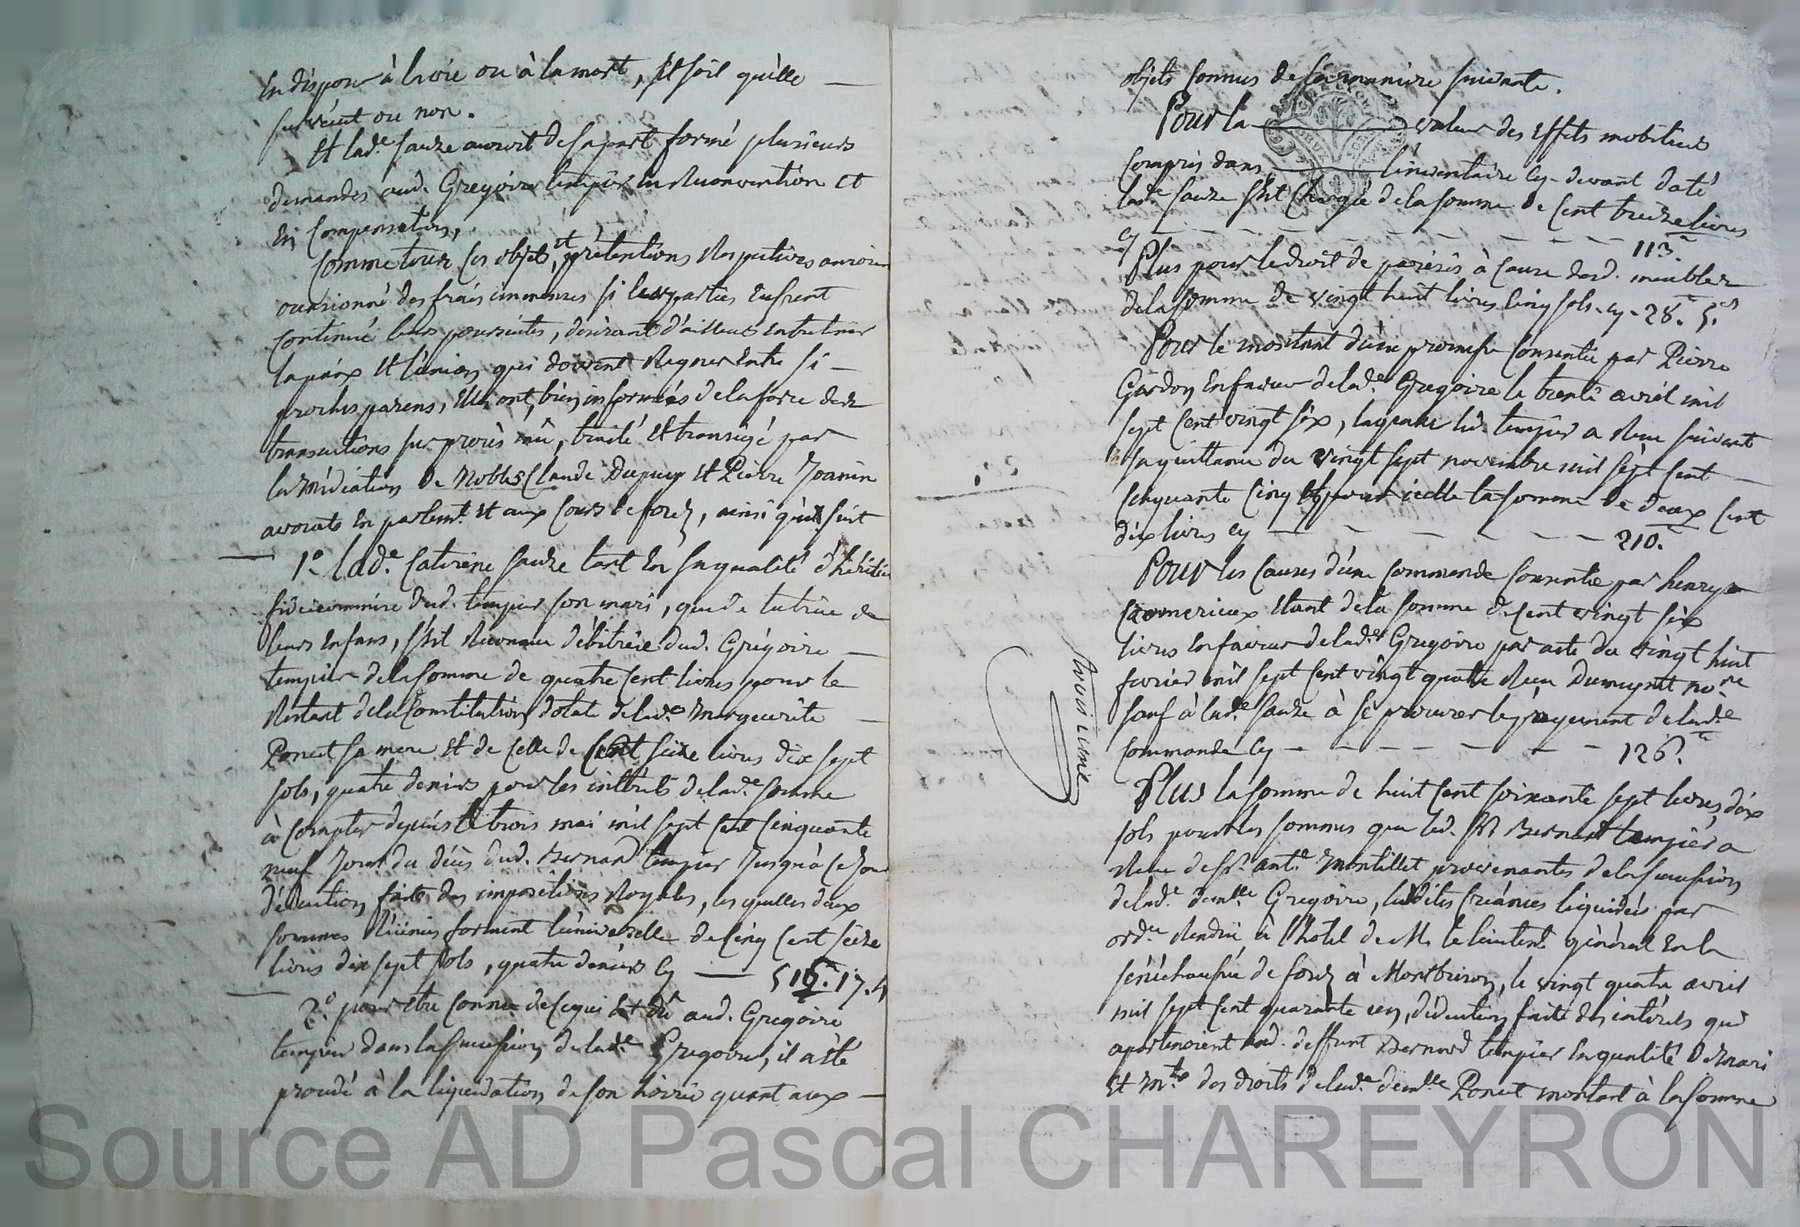 En disposer à la vie ou à la mort, Et soit qu'elle
survécut ou non.
Et lad.e Sauze auroit de sa part formé plusieurs
demandes aud. Gregoire tempier en Reconvention Et
En Compensation,
Comme tous ces objets, et prétentions Respectives auroient
occasionné des frais immenses si les parties Eussent
continué leurs poursuites, desirant d'ailleurs entretenir
la paix Et l'union qui doivent Regner Entre si
proches parens, Elles ont, bien informées de la force des
transactions sur procès mû, traité Et transigé par
la médiation de Nobles Claude Dupuy Et Pierre Joanin
avocats En parlemt. Et aux Cours de forez, ainsi qu'il suit
1.° Lad.e Catirine Sauze tant En sa qualité d'héritière
fideicommire dud. tempier son mari, que de tutrice de
leurs Enfans, s'Est Reconnue débitrice dud. Grégoire
tempier de la somme de quatre Cent livres pour le
Restant de la Constitution dotale de lad.e Marguerite
Poncet sa mere Et de celle de Cent seize livres dix sept
sols, quatre deniers pour les intérêts de lad.e somme
à compter depuis le trois mai mil sept cent Cinquante
neuf Jour du décès dud. Bernard tempier Jusqu'à ce Jour
déduction faite des impositions Royales, les quelles deux
sommes Réunies forment l'universelle de Cinq Cent seize
livres dix sept sols, quatre deniers Cy — 516.tt 17. 4
2.° pour Etre connu de ce qui Est dû aud. Gregoire
tempier dans la Succession de lad.e Gregoire, il a été
procédé à la liquidation de son hoirie quant aux
objets connus de la manière suivante.
Pour la valeur des Effets mobiliers
Compris dans l'inventaire cy-devant daté
lad.e Sauze s'Est Chargée de la somme de Cent treize livres
cy - - - - - - - - - - 113.tt
Plus pour le droit de parisis à Cause desd. meubles
de la somme de vingt huit livres Cinq sols. cy - 28.tt 5.s
Pour le montant d'une promesse Consentie par Pierre
Gardon En faveur de lad.e Gregoire le trente avril mil
sept Cent vingt six, laquelle led. tempier a Reçue suivant
sa quittance du vingt sept novembre mil sept Cent
Cinquante Cinq Et pour icelle la somme de deux Cent
dix livres cy - - - - - - - 210.tt
Pour les Causes d'une Commande Consentie par henry
Etant de la somme de Cent vingt six
livres En faveur de lad.e Gregoire par acte du vingt huit
fevrier mil sept Cent vingt quatre Reçu Dumynet no.re
sauf à lad.e Sauze à se procurer le payement de lad.e
Commande Cy - - - - - - - 126.tt
Plus la somme de huit Cent soixante sept livres, dix
sols pour les sommes que led. Sr Bernard tempier a
Reçue de Sr. ant.e Montillet provenantes de la succession
de lad.e dem.lle Gregoire, lesdites créances liquidées par
ord.ce Rendue En l'hotel de M. le lieutent. général En la
sénéchaussée de forez à Montbrison, le vingt quatre avril
mil sept Cent quarante un, déduction faite des intérêts qui
apartenoient aud. deffunt Bernard tempier En qualité de mari
Et M.tre des droits de lad.e dem.lle Poncet montant à la somme
Source AD Pascal CHAREYRON